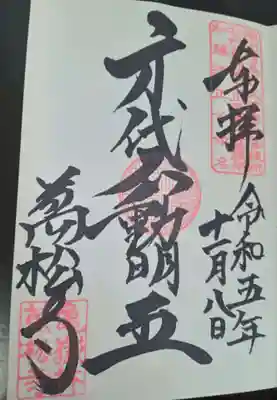 奉拝
令和五年
十一月八日
身代不動明王
萬松寺